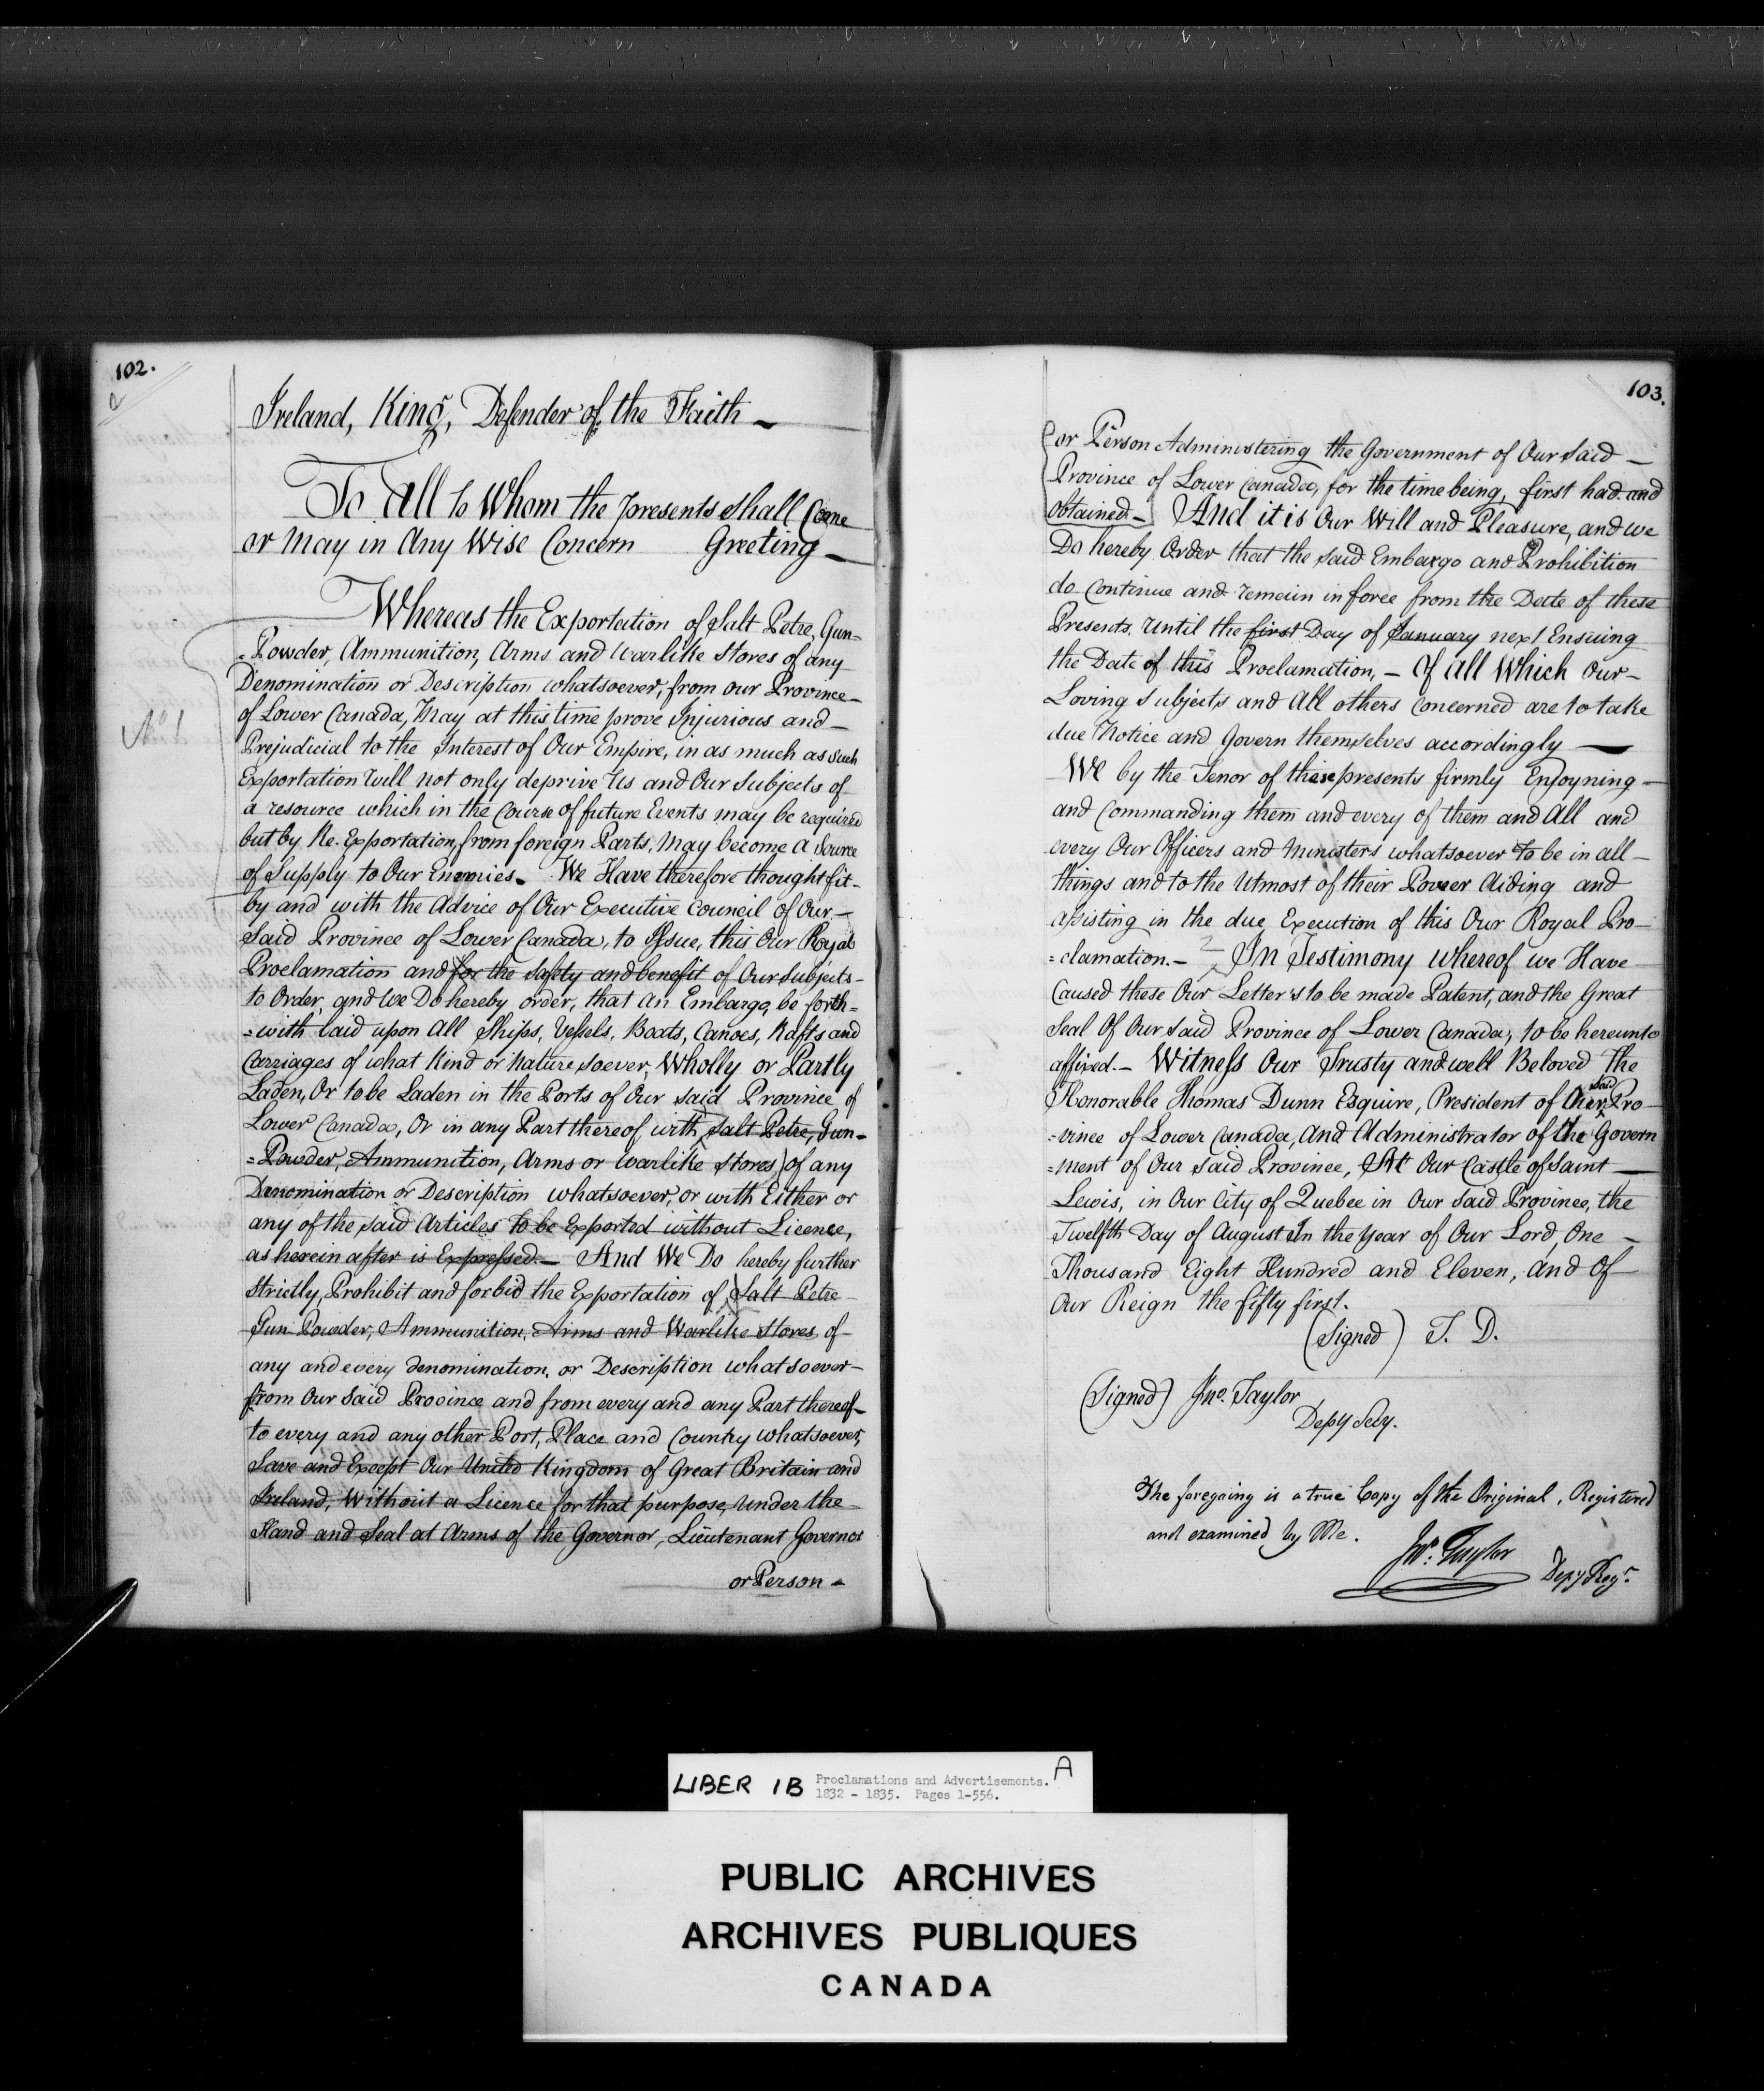 102.
Ireland, King, Defender of the Faith —
To All to Whom the presents Shall Come
or may in Any Wise Concern Greeting —
Whereas the Exportation of Salt Petre, Gun=
=Powder, Ammunition, Arms and Warlike Stores of any
Denomination or Description whatsoever, from our Province —
No. 1
of Lower Canada, May at this time prove Injurious and —
Prejudicial to the Interest of Our Empire, in as much as such
Exportation Will not only deprive Us and Our Subjects of
a resource which in the Course of future Events may be required
but by Re-Exportation from foreign Parts, May become a Source
of Supply to Our Enemies. We Have therefore thought fit —
by and with the Advice of Our Executive Council of Our —
Said Province of Lower Canada, to Issue, this Our Royal
Proclamation and for the Safety and benefit of Our Subjects —
to Order, and We Do hereby order, that an Embargo, be forth=
=with laid upon All Ships, Vessels, Boats, Canoes, Rafts and
Carriages of what Kind or Nature soever, Wholly or Partly
Laden, Or to be Laden in the Ports of Our said Province of
Lower Canada, Or in any Part thereof, with Salt Petre, Gun=
=Powder, Ammunition, Arms or Warlike Stores, of any
Denomination or Description whatsoever, or with Either or
any of the said Articles to be Exported without Licence,
as herein after is Expressed. — And We Do hereby further
Strictly, Prohibit and forbid the Exportation of Salt Petre —
Gun Powder, Ammunition, Arms and Warlike Stores of —
any and every denomination, or Description whatsoever —
from Our Said Province and from every and any Part thereof —
to every and any other Port, Place and Country whatsoever,
Save and Except Our United Kingdom of Great Britain and
Ireland, Without a Licence for that purpose, Under the —
Hand and Seal at Arms of the Governor, Lieutenant Governor
or Person —
103.
or Person Administering the Government of Our Said —
Province of Lower Canada, for the time being, first had and
obtained — And it is Our Will and Pleasure, and we
Do hereby Order that the Said Embargo and Prohibition
do Continue and remain in force from the Date of these
Presents, Until the first Day of January next Ensuing
the Date of this Proclamation, — Of All Which Our —
Loving Subjects and All others Concerned are to take
due Notice and Govern themselves accordingly —
We by the Tenor of these presents firmly Enjoyning —
and Commanding them and every of them and All and
every Our Officers and Ministers whatsoever to be in all —
things and to the Utmost of their Power Aiding and
assisting in the due Execution of this Our Royal Pro —
=clamation. — In Testimony whereof we Have
Caused these Our Letters to be made Patent, and the Great
Seal Of Our Said Province of Lower Canada, to be hereunto
affixed. — Witness Our Trusty and well Beloved The
Honorable Thomas Dunn Esquire, President of Our Said Pro —
=vince of Lower Canada, And Administrator of the Govern
=ment of Our said Province, At Our Castle of Saint —
Lewis, in Our City of Quebec in Our Said Province, the
Twelfth Day of August In the Year of Our Lord, One —
Thousand Eight Hundred and Eleven, and Of
Our Reign the fifty first.
(Signed) T. D.
(Signed) Jno. Taylor
Depy Secy.
The foregoing is a true Copy of the Original, Registered
and examined by Me.
Jno. Taylor
Depy Regr.
LIBER 1B Proclamations and Advertisements. A
1832 - 1835. Pages 1-556.
PUBLIC ARCHIVES
ARCHIVES PUBLIQUES
CANADA